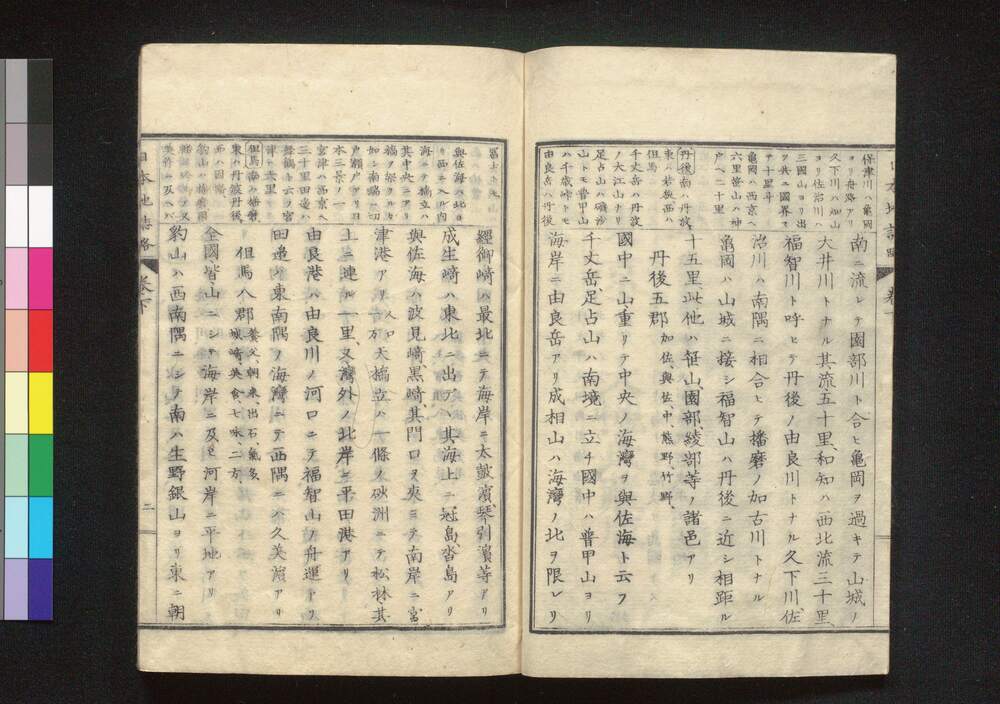 保津川ハ亀岡
ヨリ舟路アリ
久下川ハ知山
ヨリ佐治川ハ
三國山ヨリ出
ヲ共ニ國界ス
亀岡ハ西京ヘ
六里笹山ハ神
戸ヘ二十里
南ニ流レテ園部川ト合ヒ亀岡ヲ過キテ山城ノ
大井川トナル其流五十里、和知ハ西北流三十里、
福智川ト呼ヒテ丹後ノ由良川トナル久下川、佐
治川ハ南隅ニ相合ヒテ播磨ノ加古川トナル
亀岡ハ山城ニ接シ福智山ハ丹後ニ近シ相距ル
十五里、此他ハ笹山、園部、綾部等ノ諸邑アリ
丹後五郡 加佐、與佐、中、熊野、竹野、
國中ニ山、重リテ中央ノ海灣ヲ與佐海ト云フ
千丈岳、足占山ハ南境ニ立チ國中ハ普甲山ヨリ
海岸ニ由良岳アリ成相山ハ海灣ノ北ヲ限レリ
丹後南ハ丹波、
東ハ若狹西ハ
但馬
千丈岳ハ丹波
ノ大江山ナリ
足占山ハ磺砂
山トモ普甲山
ハ千歳峠トモ
由良岳ハ丹後
冨士トモ
與佐海ハ北ヨ
リ西ニ入ル内
海ニテ橋立ハ
其中央ニアリ
經御﨑ハ最北ニテ海岸ニ太皷濱、琴引濱等アリ
成生﨑ハ東北ニ出テヽ其海上ニ冠島沓島アリ
與佐海ハ波見﨑、黒﨑其門口ヲ夾ミテ南岸ニ宮
津港アリ 人口一万 天橋立ハ一條ノ砂洲ニテ松林其
上ニ連ル一里、又、灣外ノ北岸ニ平田港アリ
由良港ハ由良川ノ河口ニテ福智山ノ舟運トリ
田邉ハ東南隅ノ海灣ニテ西隅ニハ久美濱アリ
但馬八郡 養父、朝來、出石、氣多、城﨑、美含、七味、二方、
全國、皆、山ニシテ海岸ニ及ヒ河岸ニ平地アリ
豹山ハ西南隅ニシテ南ハ生野銀山ヨリ東ニ朝
本三景ノ一
宮津ハ西京ヘ
三十里田邉ハ
舞鶴トモ云ヲ宮
津ヘ六里
但馬南ハ播磨
東ハ丹波丹後、
西ハ因幡
日本地誌略
卷下
二